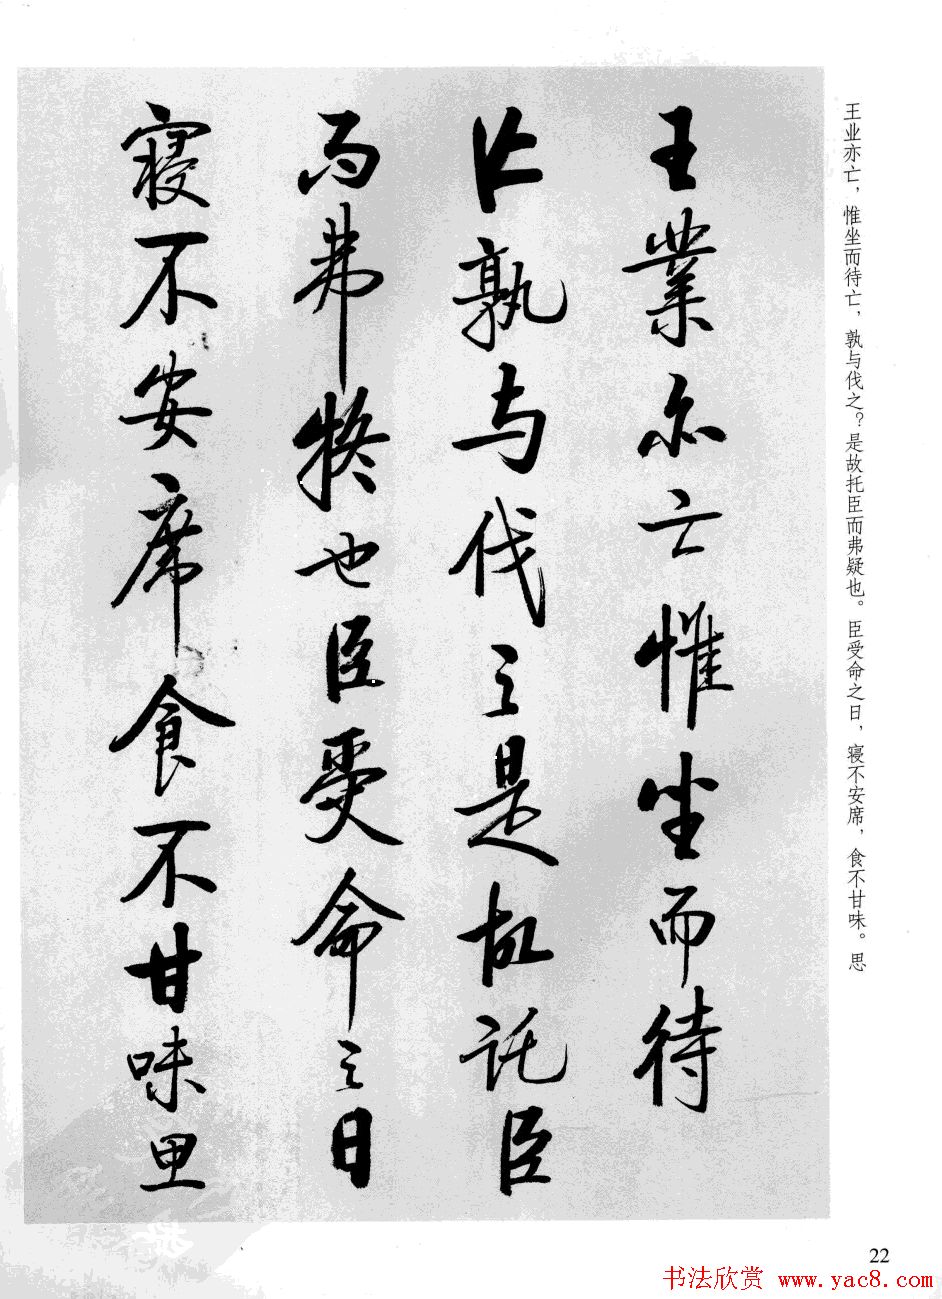 王业亦亡，惟坐而待亡，孰与伐之？是故托臣而弗疑也。臣受命之日，寝不安席，食不甘味。思
王業亦亡惟坐而待
亡孰与伐之是故託臣
而弗疑也臣受命之日
寝不安席食不甘味思
22
书法欣赏 www.yac8.com